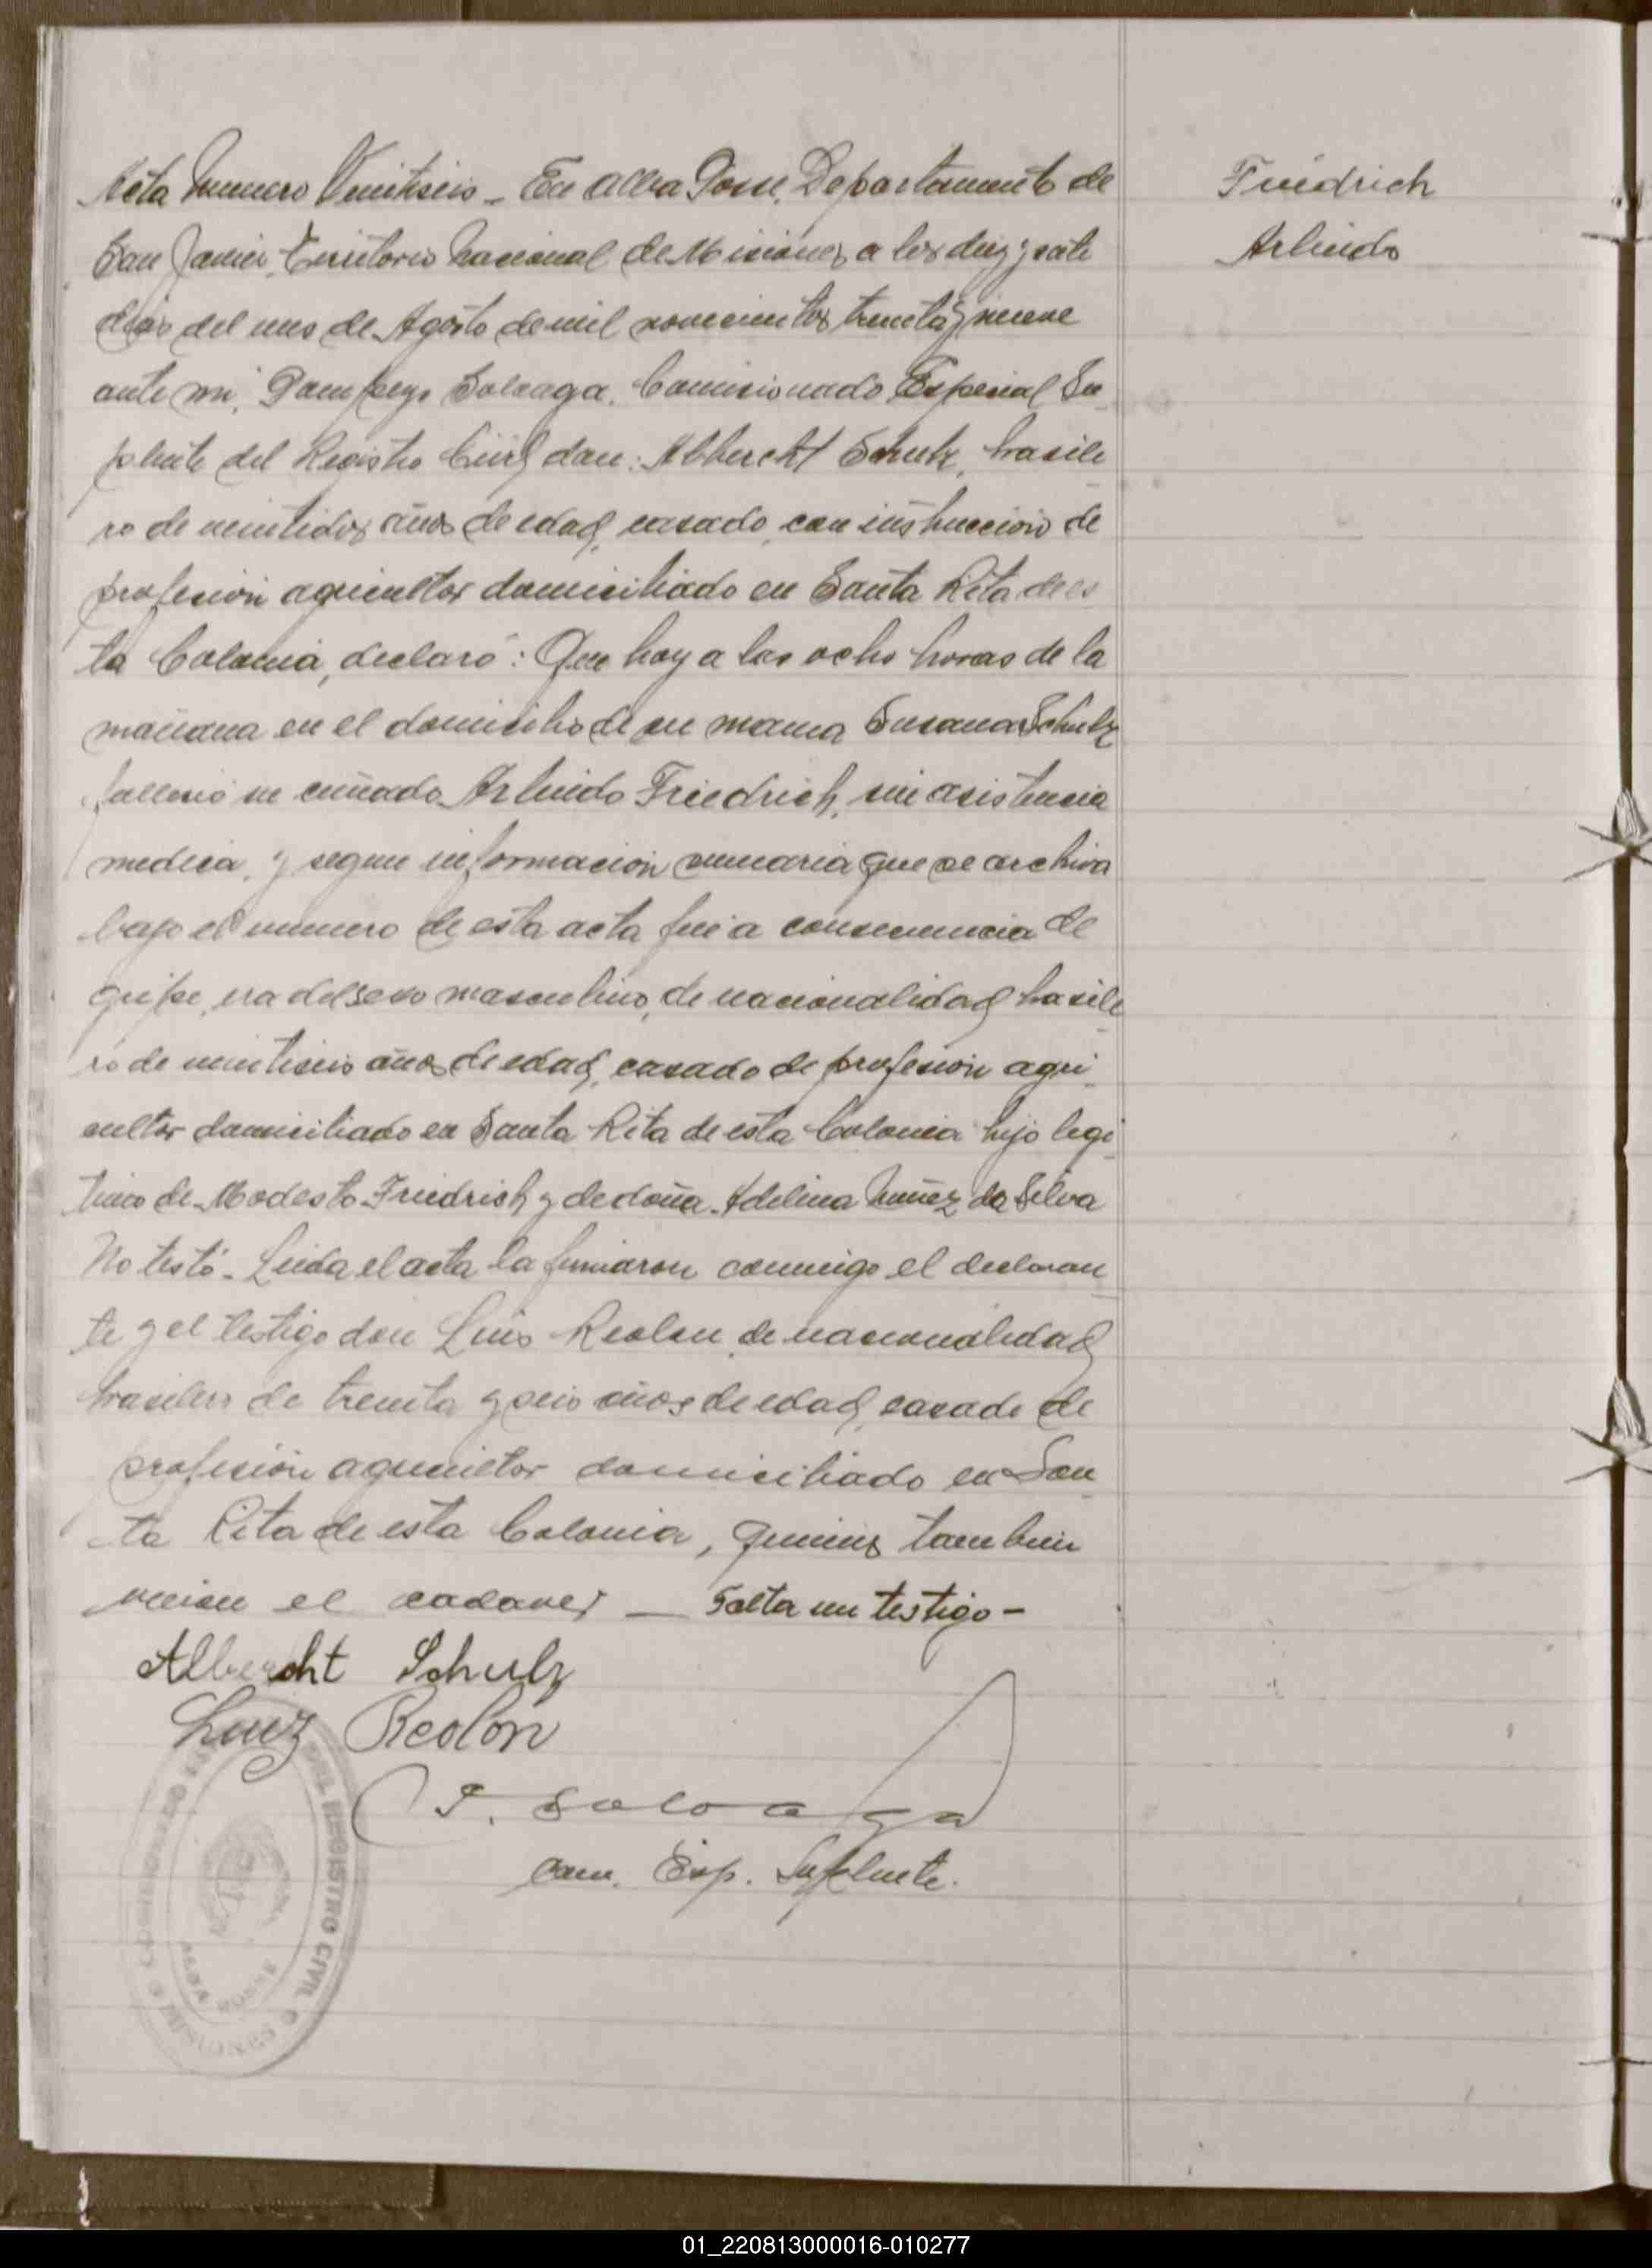 Acta Numero Veintiseis - En Alba Posse, Departamento de
San Javier, Territorio Nacional de Misiones a los diez y siete
dias del mes de Agosto de mil novecientos treinta y nueve
ante mi, Solaaga, Comisionado Especial Su_
plente del Registro Civil don: Albercht Schulz, brasile_
ro de veintidos años de edad, casado, con instruccion de
profesion agricultor domiciliado en Santa Rita de es
ta Colonia, declaró: Que hoy a las ocho horas de la
mañana en el domicilio de su mama Susana Schulz
fallecio su cuñado Arlindo Friedrich, sin asistencia
medica, y segun informacion sumaria que se archiva
bajo el numero de esta acta fué a consecuencia de
gripe, era del sexo masculino, de nacionalidad brasile_
ro de veintiseis años de edad, casado de profesion agri_
cultor domiciliado en Santa Rita de esta Colonia hijo legi_
timo de Modesto Friedrich y de doña Adelina Nuñez da Silva
No testó - Leida el acta la firmaron conmigo el declaran_
te y el testigo don Luis Reolon, de nacionalidad
brasilero de treinta y seis años de edad, casado de
profesion agricultor domiciliado en San_
ta Rita de esta Colonia, quienes tambien
vieron el cadaver — Falta un testigo -
Albercht Schulz
Luiz Reolon
P. Solaaga
Com. Esp. Suplente.
Friedrich
Arlindo
REGISTRO CIVIL
ALBA POSSE
MISIONES
01_220813000016-010277